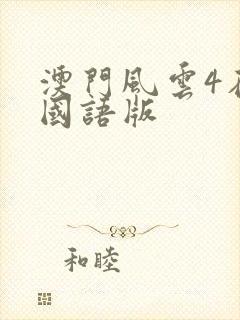 澳門風雲4
國語版
和睦